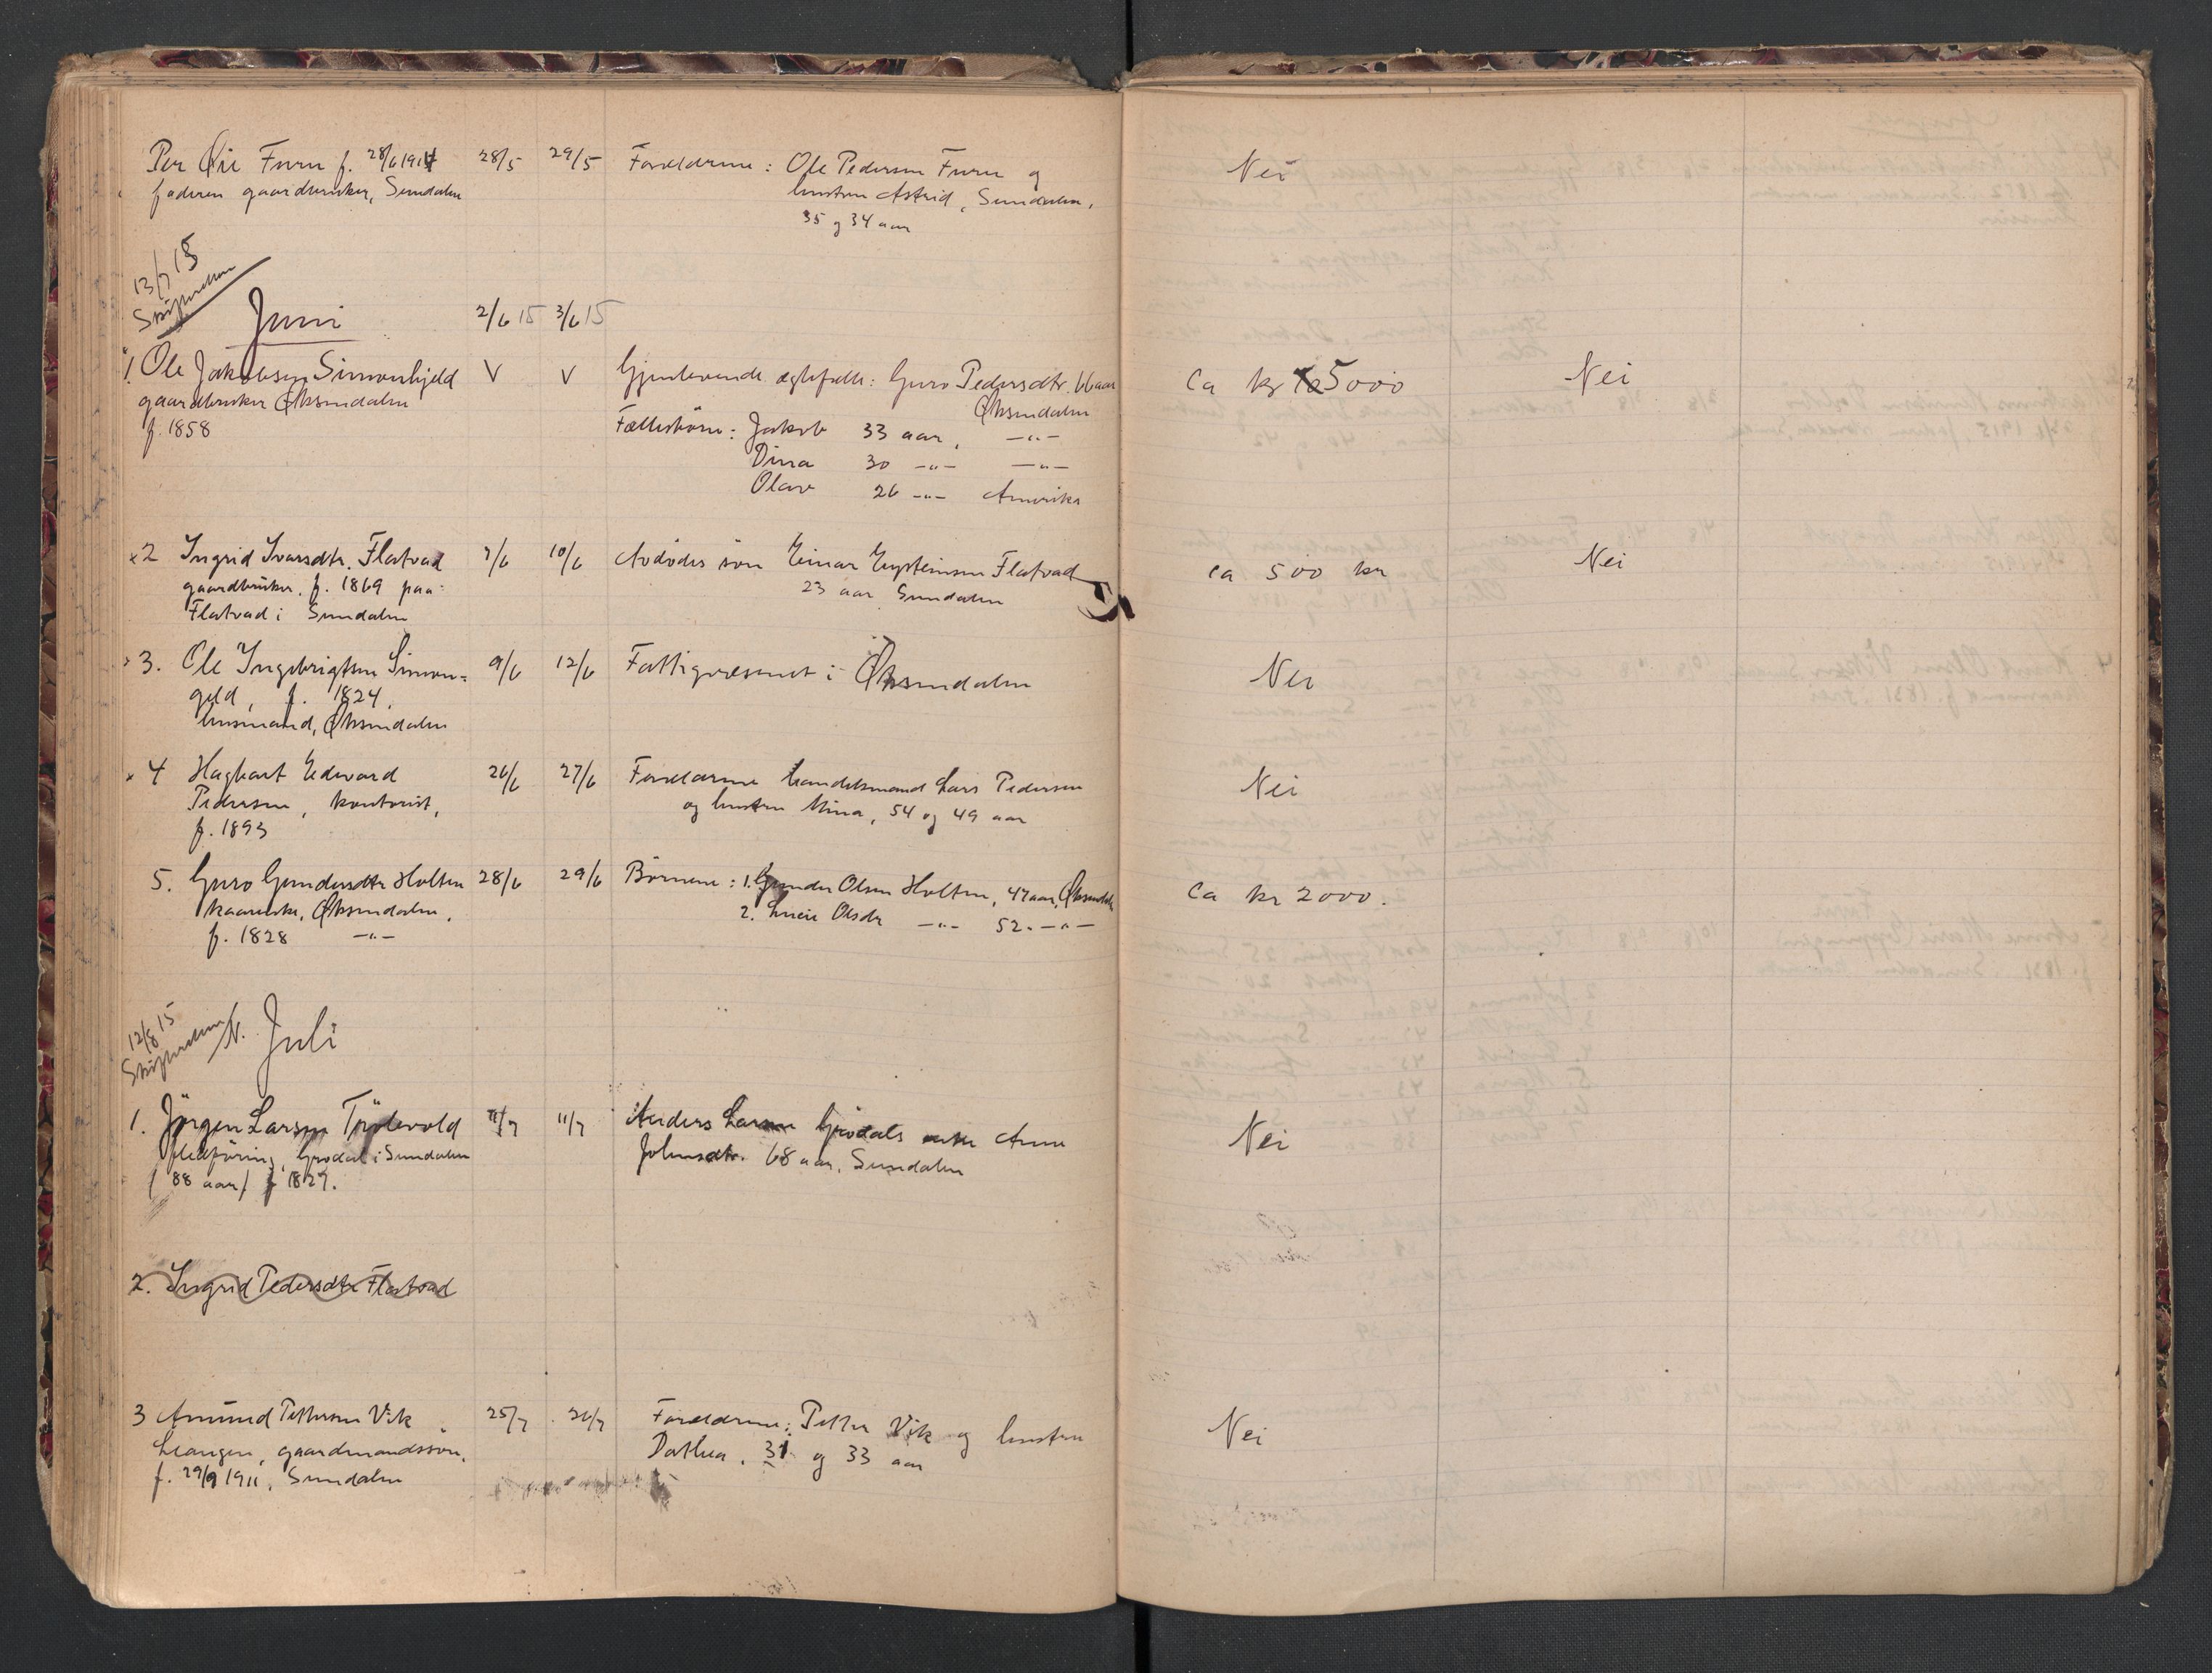 Per Øie Furu f. 28/6 1914 28/5 29/5 Forældrene: Ole Pedersen Furu og Nei
faderen gaardbruker, Sundalen hustru Astrid, Sundalen,
35 og 34 aar
13/7 15
Juni 2/6 15 3/6 15
1. Ole Jakobsen Simonhjeld V V Gjenlevende ægtefælle: Guro Pedersdtr. 66 aar Ca kr 5000 Nei
gaardbruker Øksendalen Øksendalen
f. 1858 Fællesbörn: Jakob 33 aar, —"—
Dina 30 —"— —"—
Olav 26 —"— Amerika
x2 Ingrid Ivarsdtr. Flatvad 7/6 10/6 Avdødes sön Einar Eysteinsen Flatvad ca 500 kr Nei
gaardbruker, f. 1869 paa 23 aar Sundalen
Flatvad i Sundalen
3. Ole Ingebrigtsen Simon= 9/6 12/6 Fattigvæsenet i Øksendalen Nei
geld, f. 1824,
husmand, Øksendalen
x 4 Hagbart Edvard 26/6 27/6 Forældrene handelsmand Lars Pedersen Nei
Pedersen, kontorist, og hustru Mina, 54 og 49 aar
f. 1893
5. Guro Gundersdtr Holten 28/6 29/6 Börnene: 1. Gunder Olsen Holten, 47 aar, Øksendalen Ca kr 2000.
kaarenke, Øksendalen, 2. Olsdtr —"— 52 —"—
f. 1828 —"—
12/8 15
Juli
1. Jörgen Larsen 11/7 11/7 Anders Larsen Grødals enke Anne Nei
Grødal i Sundalen Johnsdtr. 68 aar, Sundalen
(88 aar) f 1827.
2. Ingrid Pedersdtr Flatvad
3 Amund Pettersen Vik 25/7 26/7 Forældrene: Petter Vik og hustru Nei
gaardmandssön, Dorthea, 31 og 33 aar
f. 29/9 1911, Sundalen